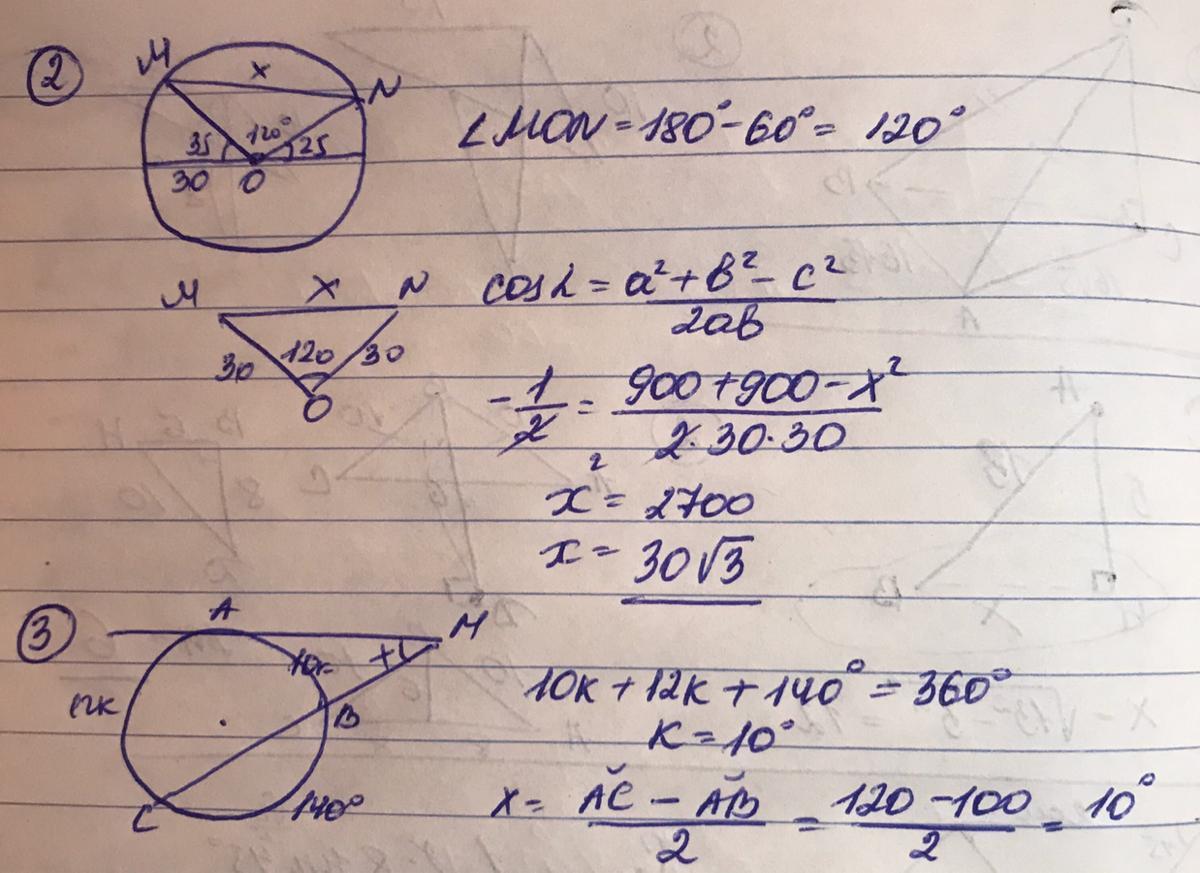 ②
M x N
35 120° 25
30 O
∠MON = 180° - 60° = 120°
M x N
30 120 30
O
cos α = a² + b² - c² / 2ab
-1/2 = 900 + 900 - x² / 2·30·30
x² = 2700
x = 30√3
③
A M
10к x
12к B
C 140°
10к + 12к + 140° = 360°
к = 10°
x = AC - AB / 2 = 120 - 100 / 2 = 10°